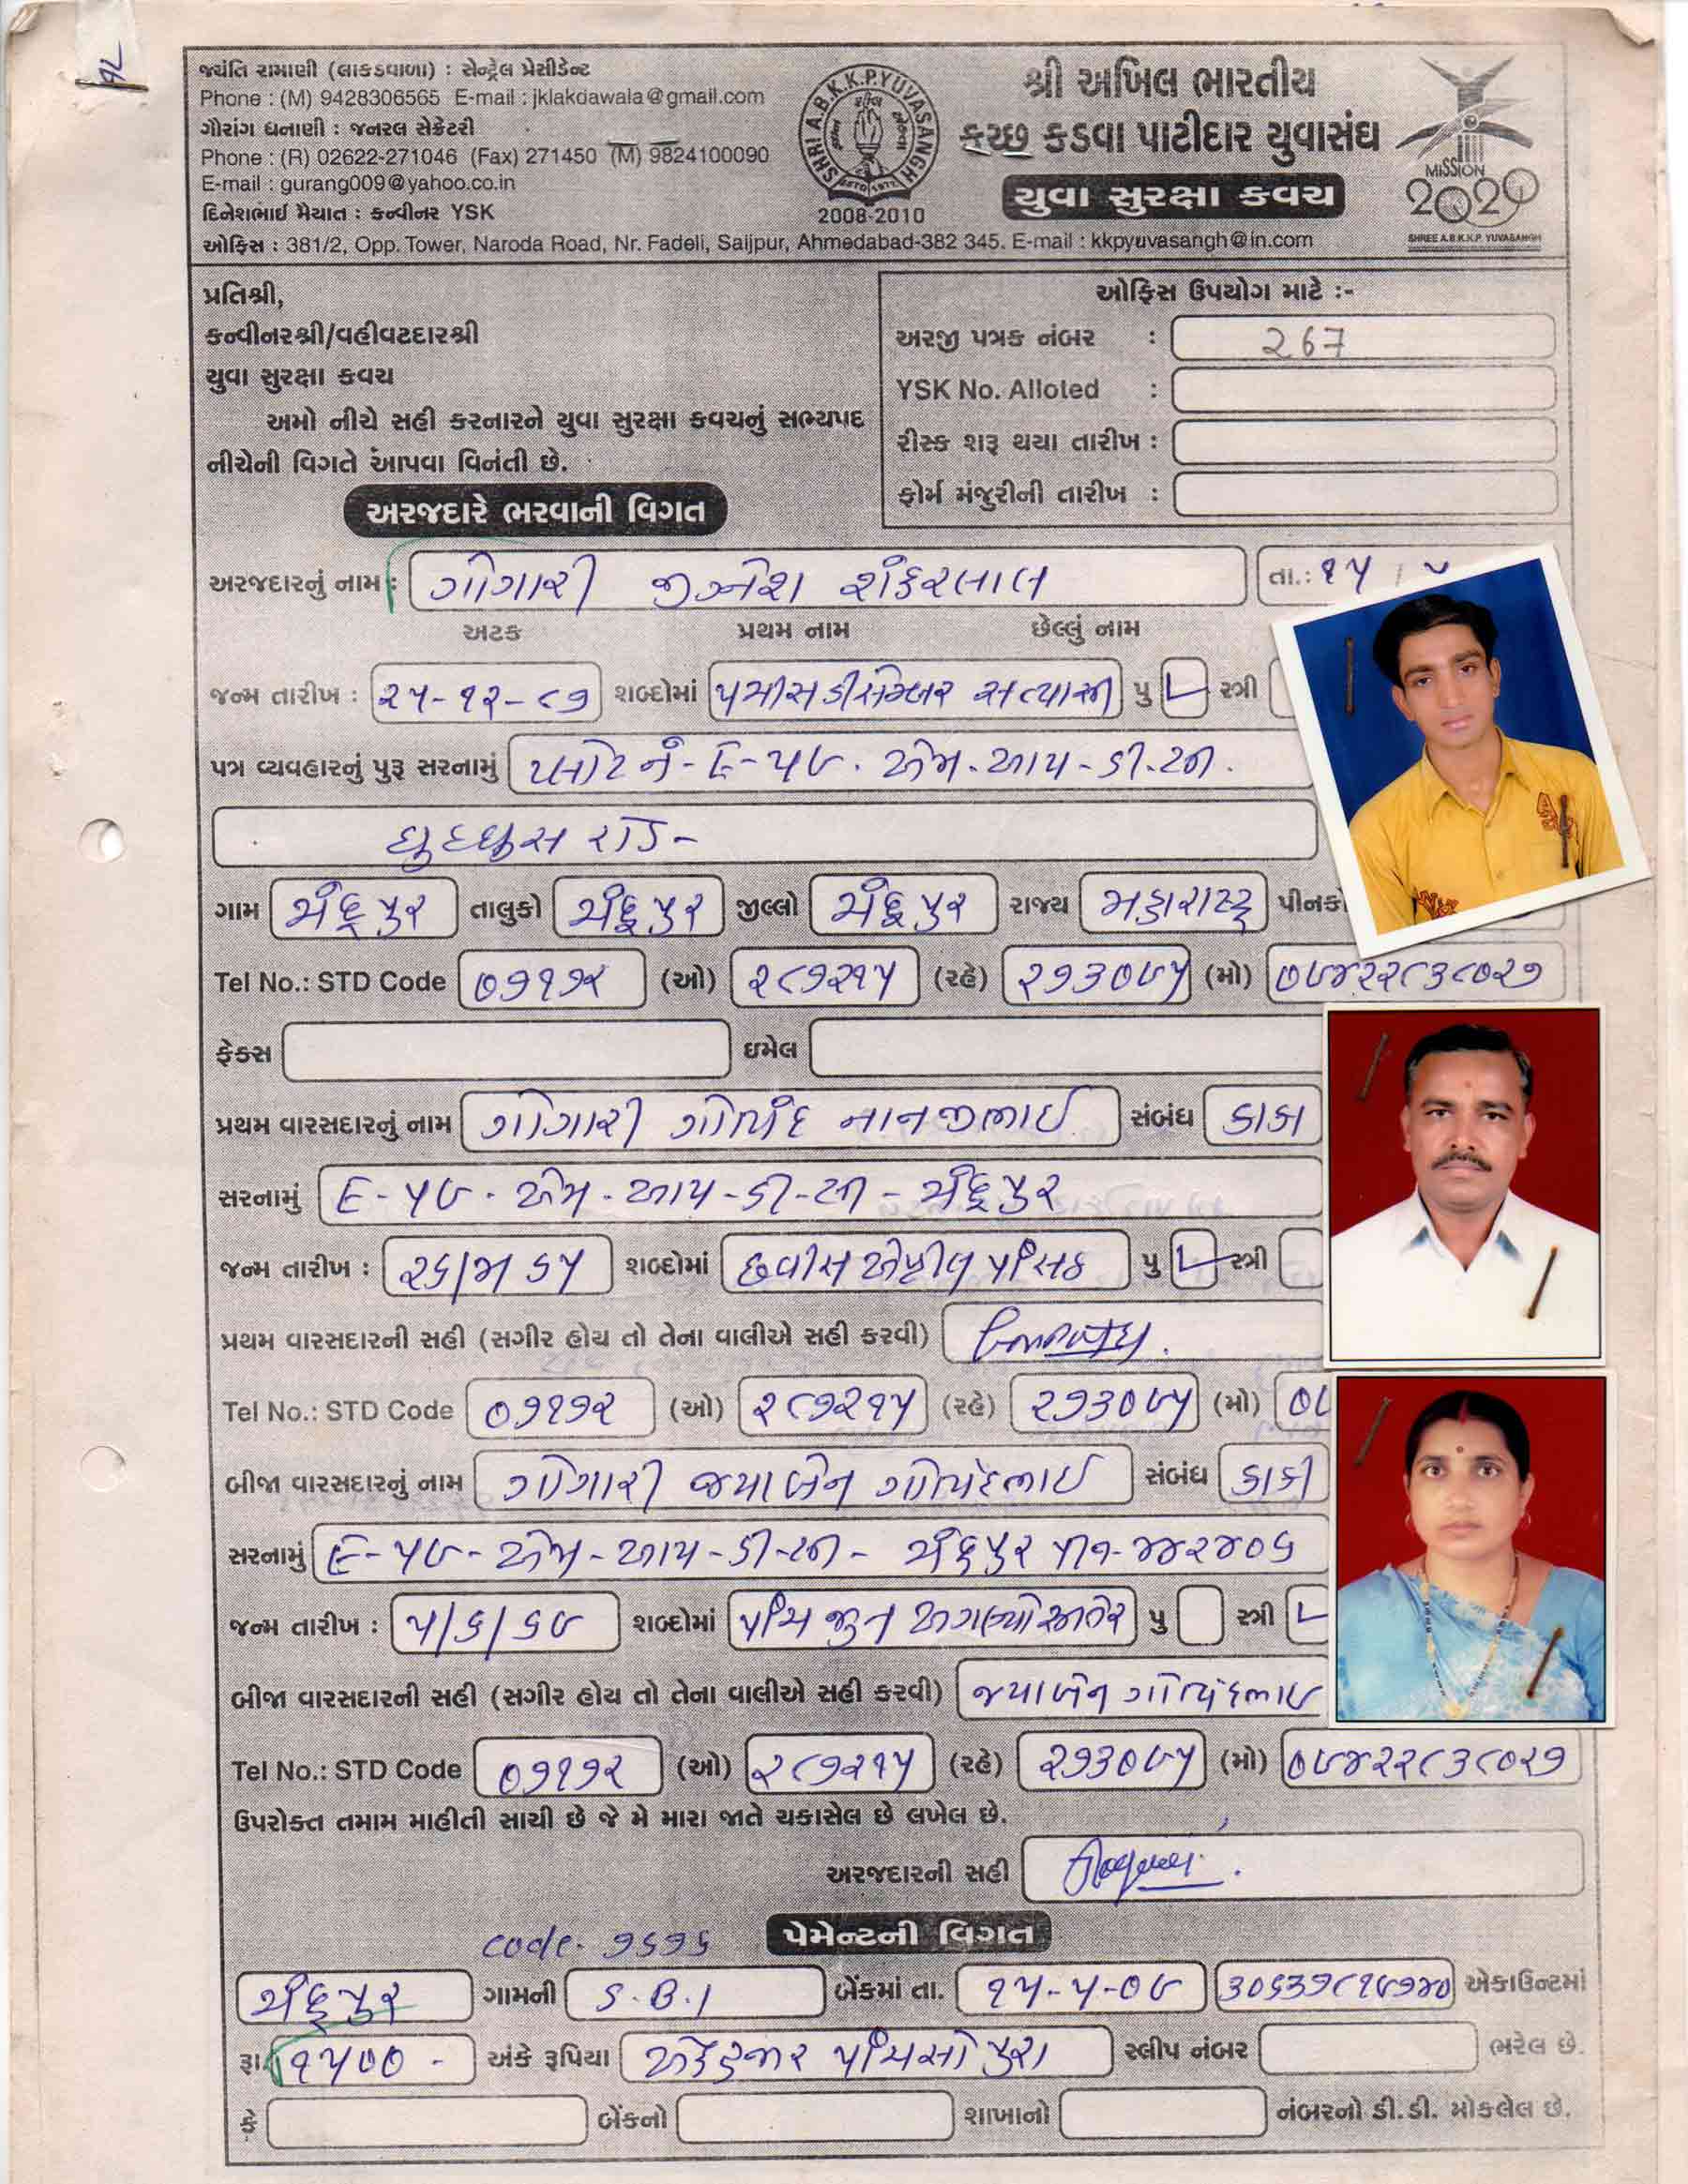 જયંતિ રામાણી (લાકડાવાળા) : સેન્ટ્રેલ પ્રેસીડેન્ટ
Phone : (M) 9428306565 E-mail : jklakdawala@gmail.com
ગૌરાંગ ધનાણી : જનરલ સેક્રેટરી
Phone : (R) 02622-271046 (Fax) 271450 (M) 9824100090
E-mail : gurang009@yahoo.co.in
દિનેશભાઈ મૈયાત : કન્વીનર YSK
SHRI A.B.K.K.P. YUVASANGH
ESTD 1977
2008-2010
શ્રી અખિલ ભારતીય
કચ્છ કડવા પાટીદાર યુવાસંઘ
યુવા સુરક્ષા કવચ
MISSION
2020
SHREE A.B.K.K.P. YUVASANGH
ઓફિસ : 381/2, Opp. Tower, Naroda Road, Nr. Fadeli, Saijpur, Ahmedabad-382 345. E-mail : kkpyuvasangh@in.com
પ્રતિશ્રી,
કન્વીનરશ્રી/વહીવટદારશ્રી
યુવા સુરક્ષા કવચ
અમો નીચે સહી કરનારને યુવા સુરક્ષા કવચનું સભ્યપદ
નીચેની વિગતે આપવા વિનંતી છે.
ઓફિસ ઉપયોગ માટે :-
અરજી પત્રક નંબર : 267
YSK No. Alloted :
રીસ્ક શરૂ થયા તારીખ :
ફોર્મ મંજુરીની તારીખ :
અરજદારે ભરવાની વિગત
અરજદારનું નામ : ગોગારી જીગ્નેશ શંકરલાલ તા.: ૧૫ /
અટક પ્રથમ નામ છેલ્લું નામ
જન્મ તારીખ : ૨૫-૧૨-૮૭ શબ્દોમાં પચીસ ડીસેમ્બર સત્યાસી પુ સ્ત્રી
પત્ર વ્યવહારનું પુરૂ સરનામું પ્લોટ નં-ઈ-૫૯. એમ.આય-ડી.સી.
ઘુઘ્ઘુસ રોડ-
ગામ ચંદ્રપુર તાલુકો ચંદ્રપુર જીલ્લો ચંદ્રપુર રાજ્ય મહારાષ્ટ્ર પીનકો
Tel No.: STD Code ૦૭૧૭૨ (ઓ) ૨૮૭૨૧૫ (રહે) ૨૭૩૦૯૫ (મો) ૦૯૪૨૨૮૩૮૦૨૭
ફેક્સ ઇમેલ
પ્રથમ વારસદારનું નામ ગોગારી ગોવિંદ નાનજીભાઈ સંબંધ કાકા
સરનામું ઈ-૫૯. એમ.આય-ડી-સી - ચંદ્રપુર
જન્મ તારીખ : ૨૬/૪ ૬૫ શબ્દોમાં છવીસ એપ્રીલ પાંસઠ પુ સ્ત્રી
પ્રથમ વારસદારની સહી (સગીર હોય તો તેના વાલીએ સહી કરવી)
Tel No.: STD Code ૦૭૧૭૨ (ઓ) ૨૮૭૨૧૫ (રહે) ૨૭૩૦૯૫ (મો) ૦૯
બીજા વારસદારનું નામ ગોગારી જયાબેન ગોવિંદભાઈ સંબંધ કાકી
સરનામું ઈ-૫૯-એમ-આય-ડી-સી- ચંદ્રપુર પીન-૪૪૨૪૦૬
જન્મ તારીખ : ૫/૬/૬૯ શબ્દોમાં પાંચ જુન અગણ્યોસીતેર પુ સ્ત્રી
બીજા વારસદારની સહી (સગીર હોય તો તેના વાલીએ સહી કરવી) જયાબેન ગોવિંદભાઈ
Tel No.: STD Code ૦૭૧૭૨ (ઓ) ૨૮૭૨૧૫ (રહે) ૨૭૩૦૯૫ (મો) ૦૯૪૨૨૮૩૮૦૨૭
ઉપરોક્ત તમામ માહીતી સાચી છે જે મે મારા જાતે ચકાસેલ છે લખેલ છે.
અરજદારની સહી
code- ૭૬૧૬ પેમેન્ટની વિગત
ચંદ્રપુર ગામની S.B.I બેંકમાં તા. ૧૫-૫-૦૯ ૩૦૬૩૭૮૧૯૭૪૦ એકાઉન્ટમાં
રૂા ૧૫૦૦ - અંકે રૂપિયા એકહજાર પાંચસો પુરા સ્લીપ નંબર ભરેલ છે.
કે બેંકનો શાખાનો નંબરનો ડી.ડી. મોકલેલ છે.